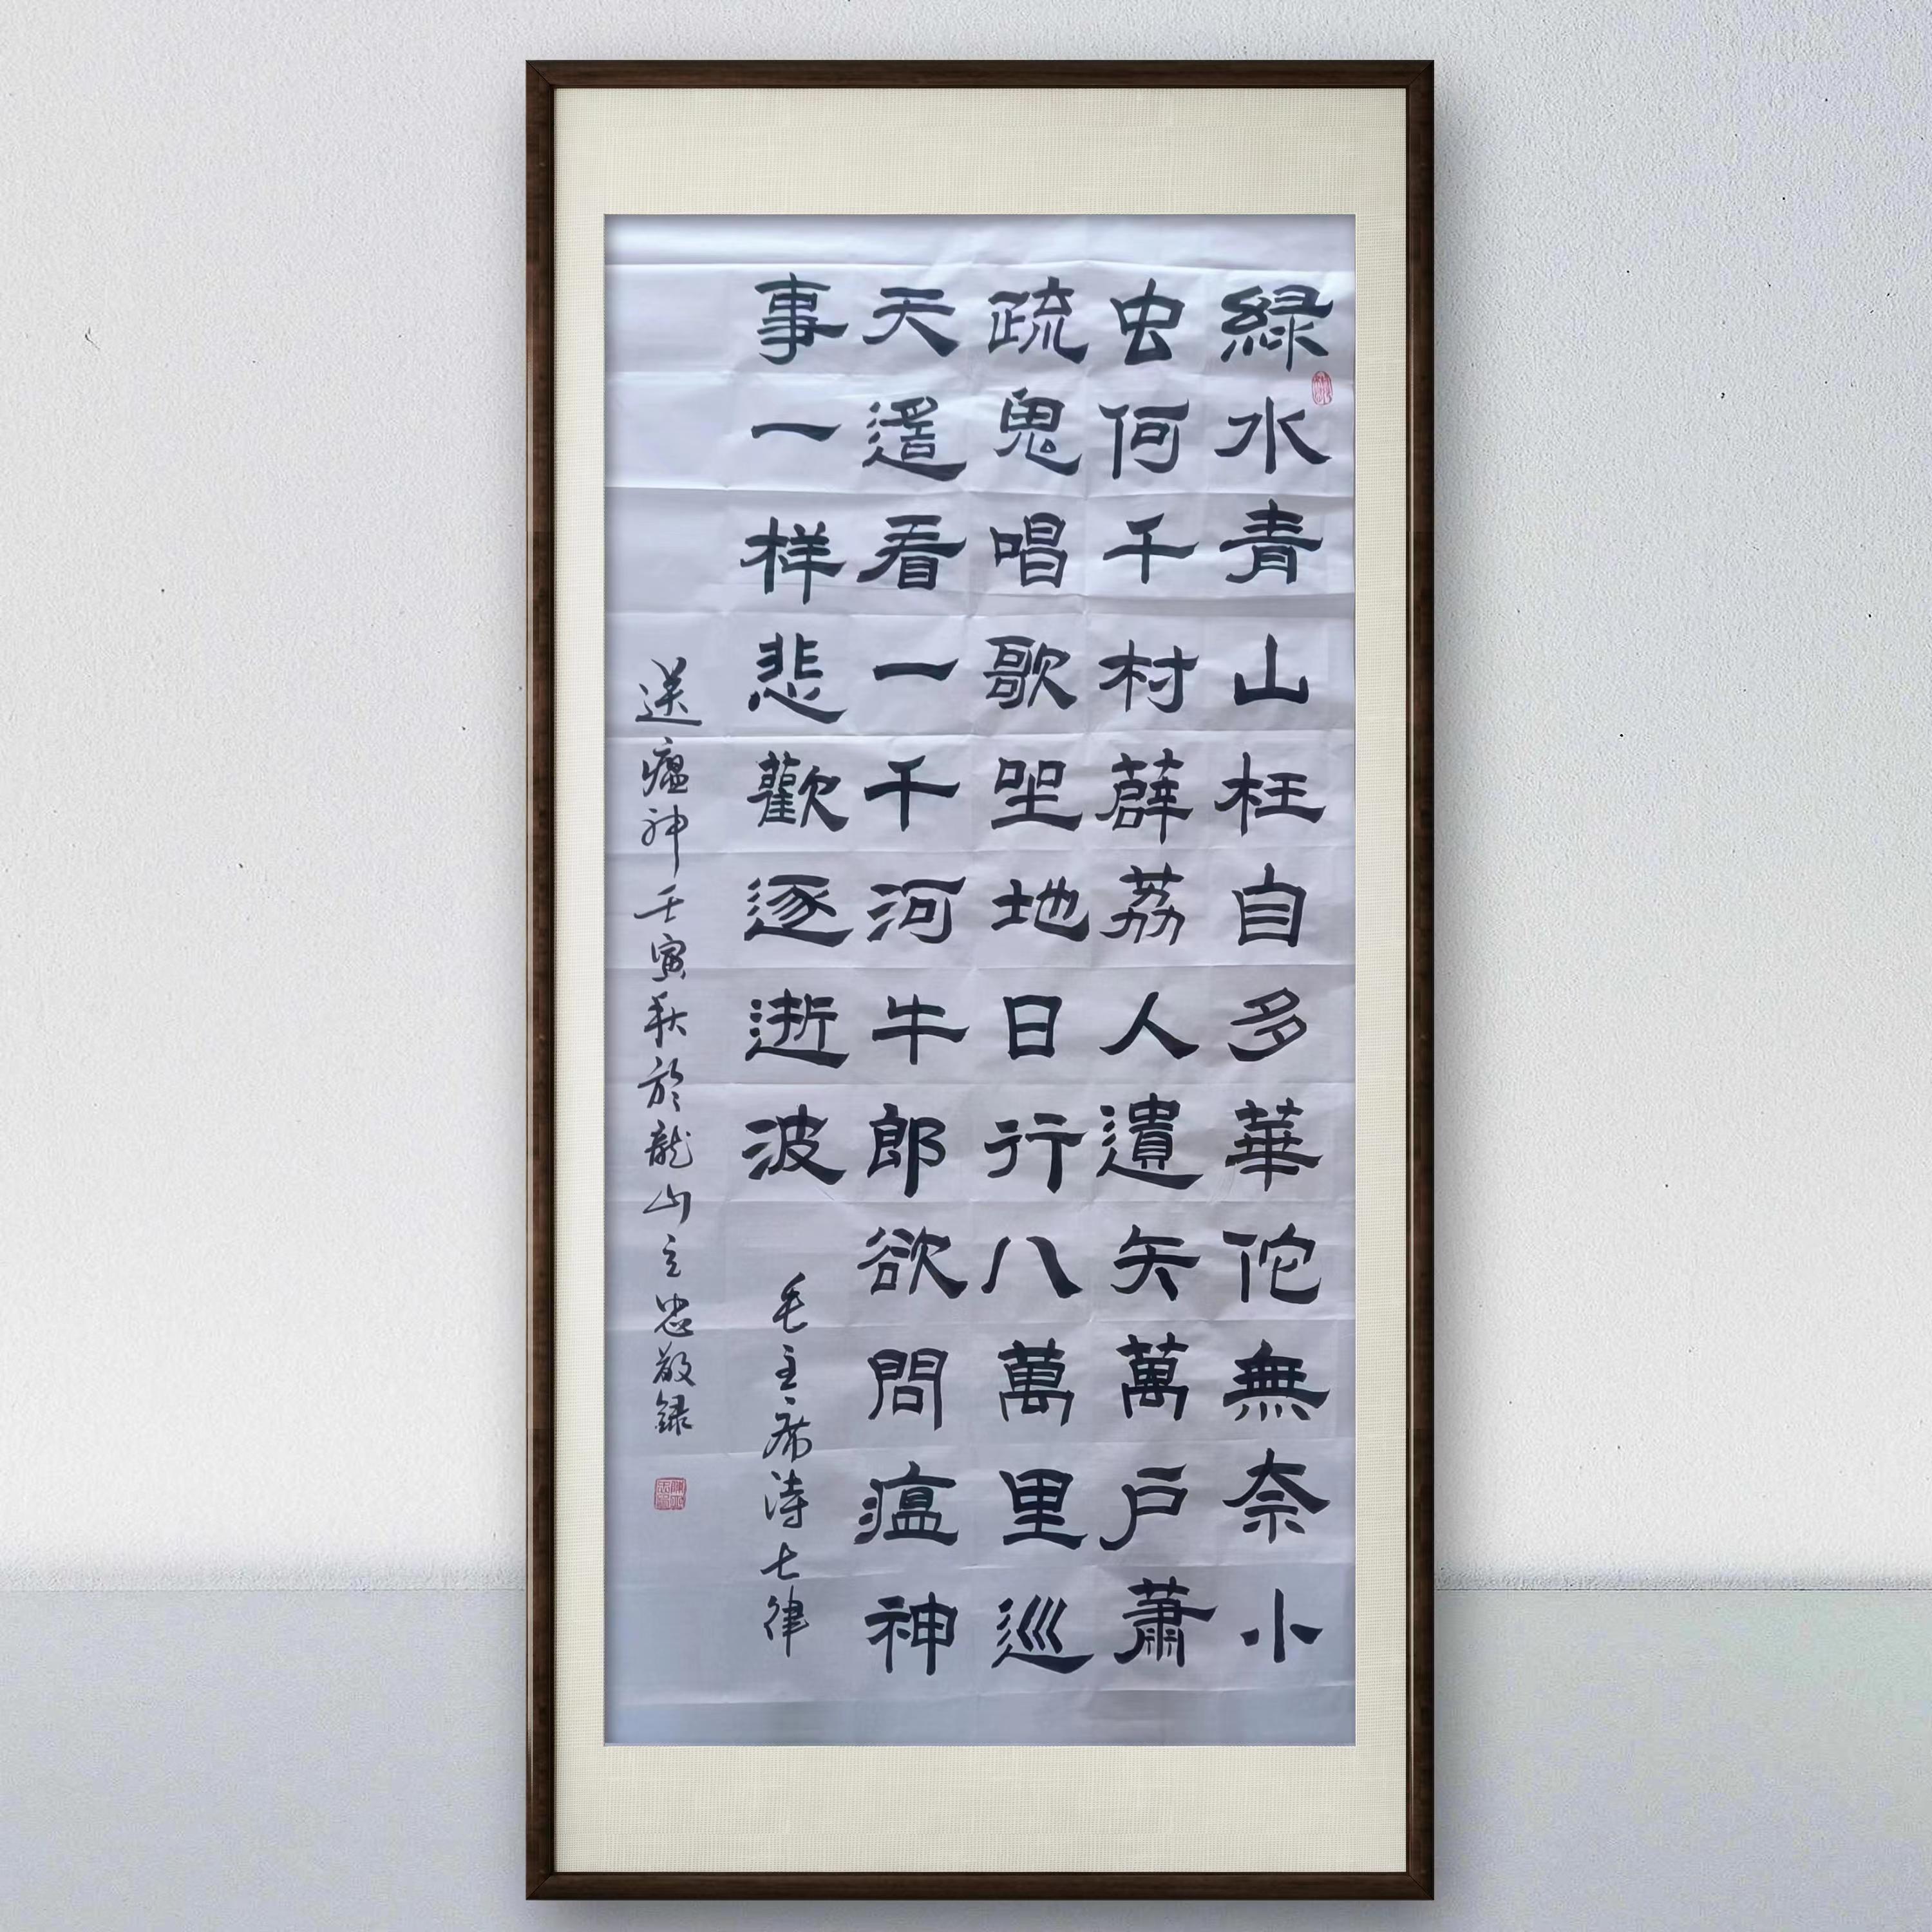 緑水青山枉自多華佗無奈小
虫何千村薜荔人遺矢萬户蕭
疏鬼唱歌坐地日行八萬里巡
天遥看一千河牛郎欲問瘟神
事一样悲歡逐逝波
毛主席诗七律
送瘟神壬寅秋於龍山立忠敬録